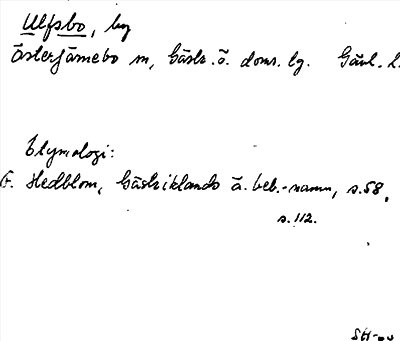 Ulfsbo, by
Österfärnebo sn, Gästr. ö. doms. lg. Gävl. l.
Etymologi:
F. Hedblom, Gästriklands ä. beb.-namn, s.58,
s.112.